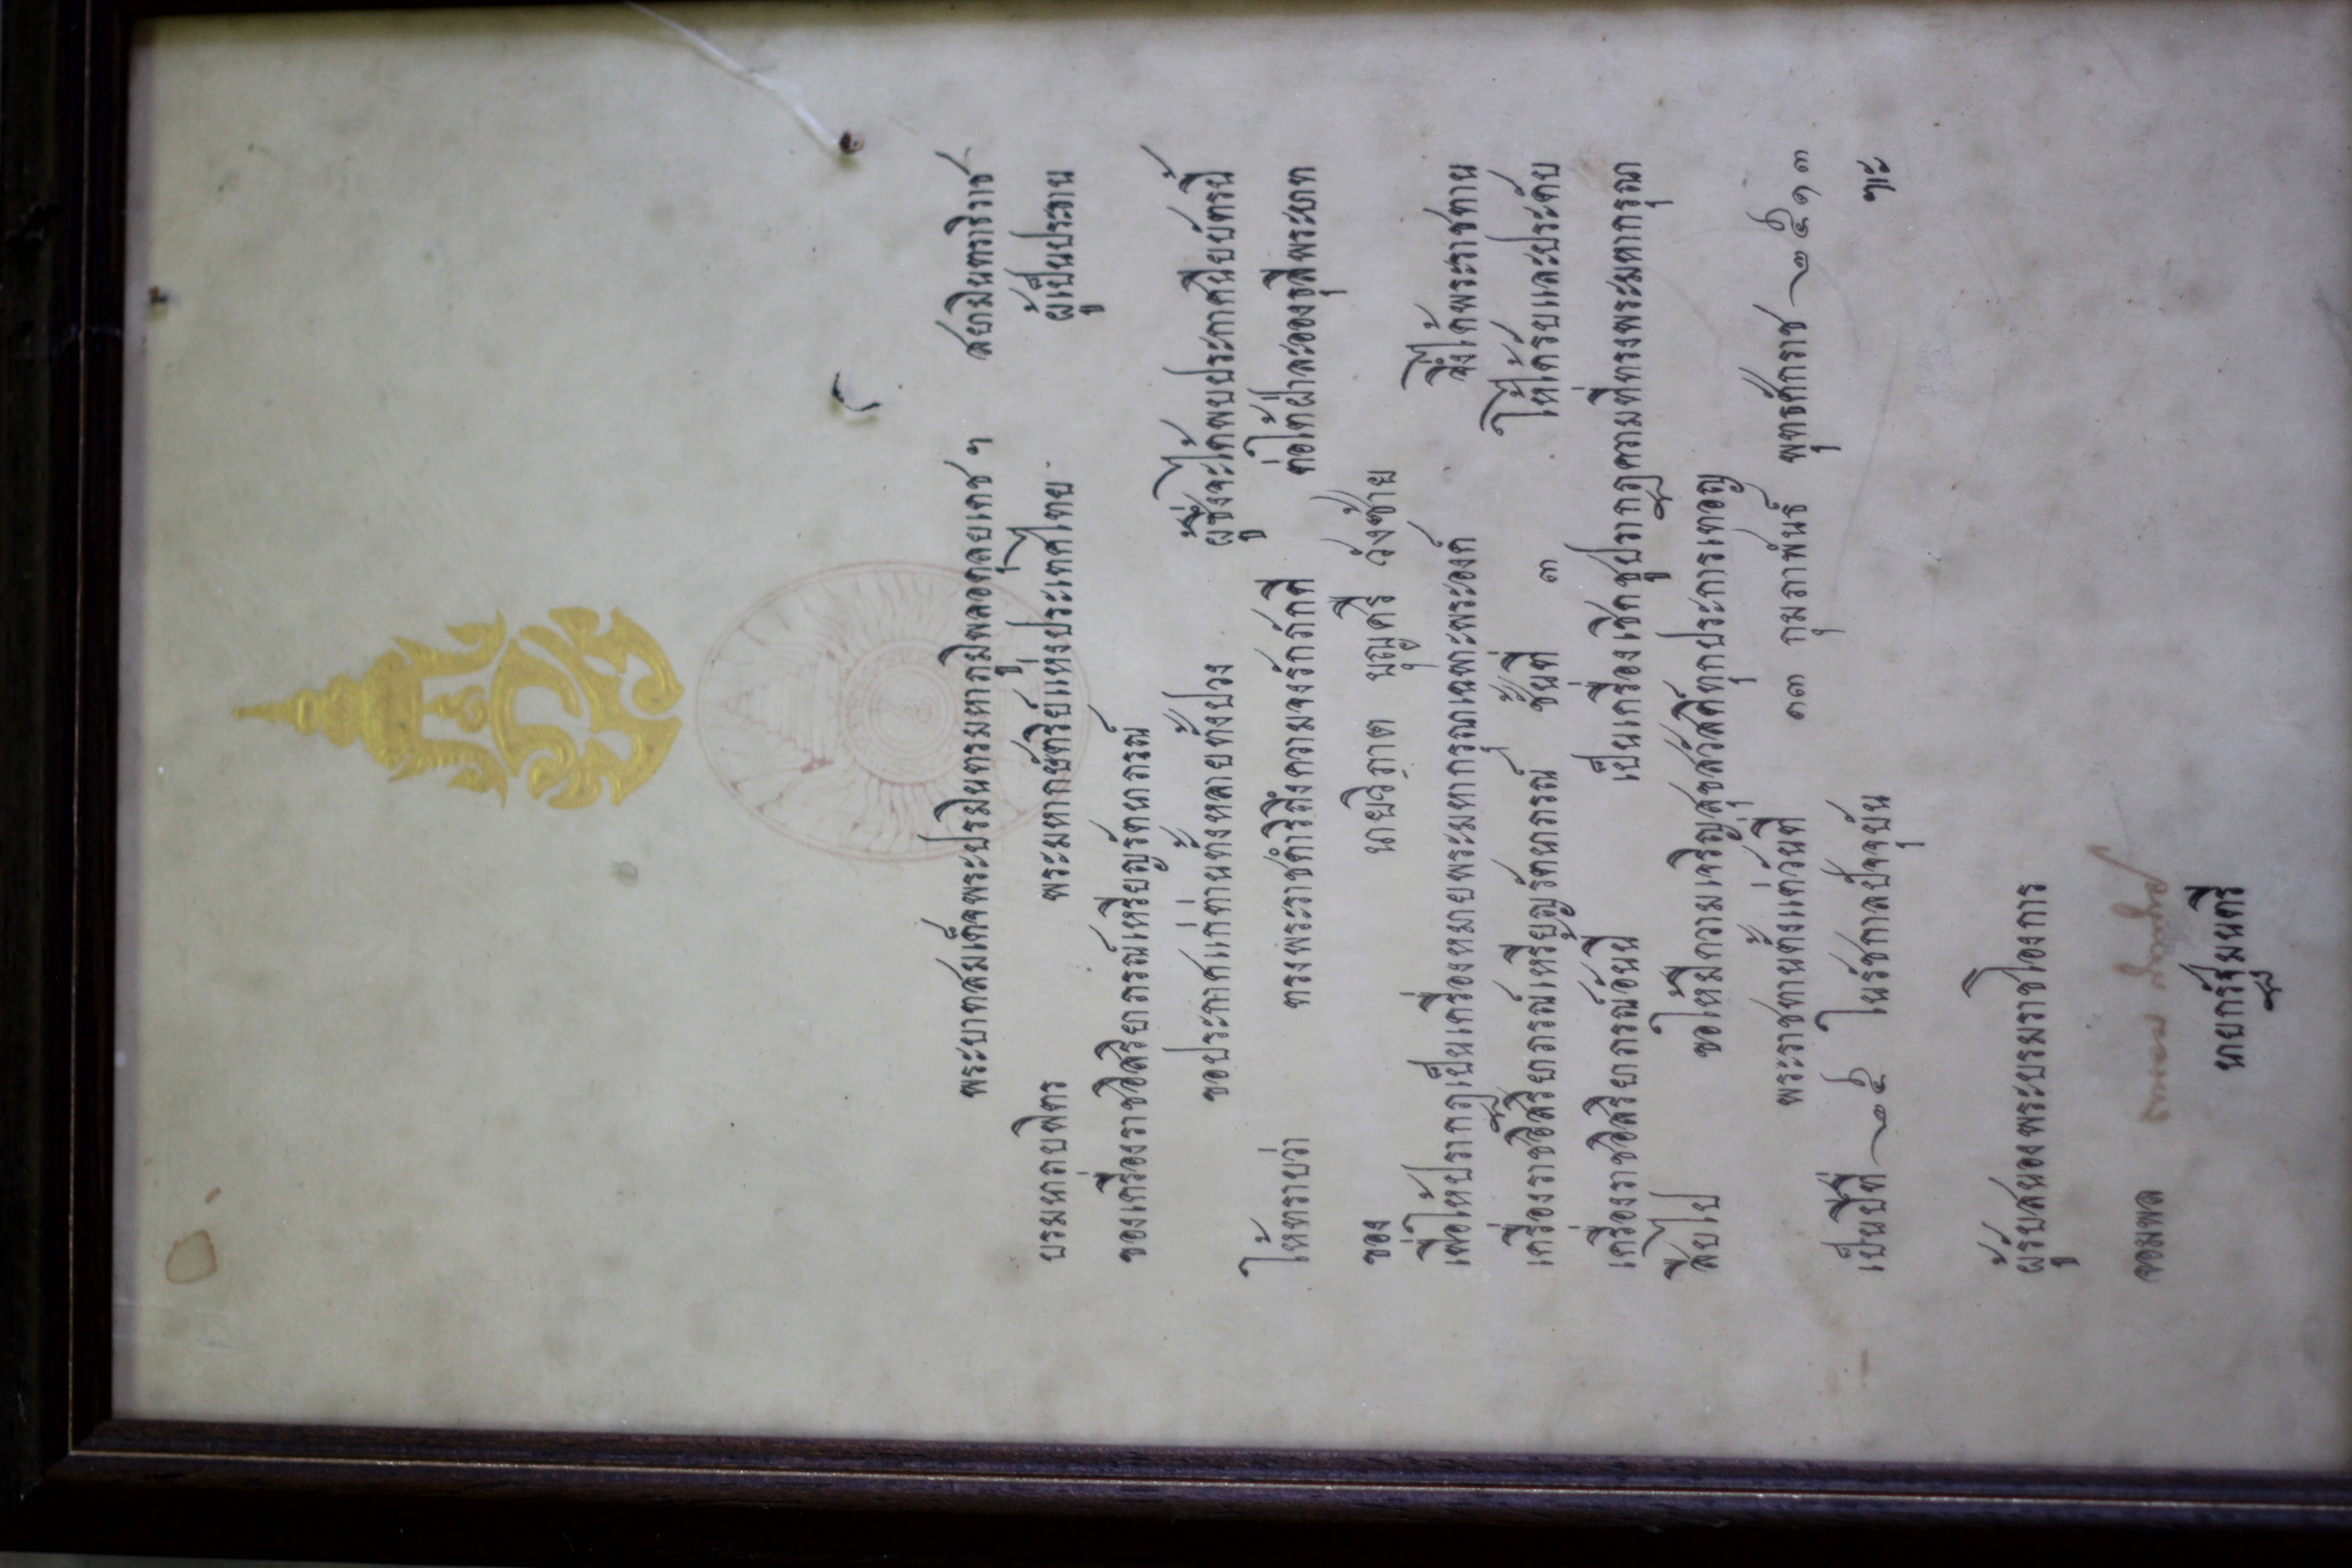 พระบาทสมเด็จพระปรมินทรมหาภูมิพลอดุลยเดช ฯ สยามินทราธิราช
บรมนาถบพิตร พระมหากษัตริย์แห่งประเทศไทย ผู้เป็นประธาน
ของเครื่องราชอิสริยาภรณ์เหรียญรัตนาภรณ์
ขอประกาศแก่ท่านทั้งหลายทั้งปวง ผู้ซึ่งจะได้พบประกาศนียบัตรนี้
ให้ทราบว่า ทรงพระราชดำริถึงความจงรักภักดี ต่อใต้ฝ่าละอองธุลีพระบาท
ของ นายวิภาต บุญศรี วังซ้าย
เพื่อให้ปรากฏเป็นเครื่องหมายพระมหากรุณาเฉพาะพระองค์ จึ่งได้พระราชทาน
เครื่องราชอิสริยาภรณ์เหรียญรัตนาภรณ์ ชั้นที่ ๓ ให้ได้รับและประดับ
เครื่องราชอิสริยาภรณ์อันนี้ เป็นเครื่องเชิดชูปรากฏความที่ทรงพระมหากรุณา
สืบไป ขอให้มีความเจริญสุขสวัสดิ์ทุกประการเทอญ
พระราชทานตั้งแต่วันที่ ๓๓ กุมภาพันธ์ พุทธศักราช ๒๕๑๓
เป็นปีที่ ๒๕ ในรัชกาลปัจจุบัน
ทะ
ผู้รับสนองพระบรมราชโองการ
จอมพล ถนอม กิตติขจร
นายกรัฐมนตรี